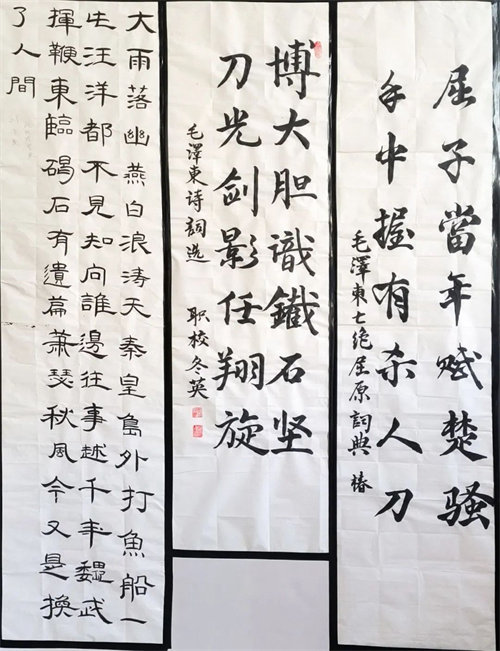 屈子當年赋楚骚
手中握有杀人刀
毛澤東七绝屈原詞典 椿
博大胆識鐵石坚
刀光剑影任翔旋
毛澤東诗詞选 职校冬英
大雨落幽燕白浪涛天秦皇島外打魚船一
片汪洋都不見知向誰邊往事越千年魏武
揮鞭東臨碣石有遺篇蕭瑟秋風今又是換
了人間